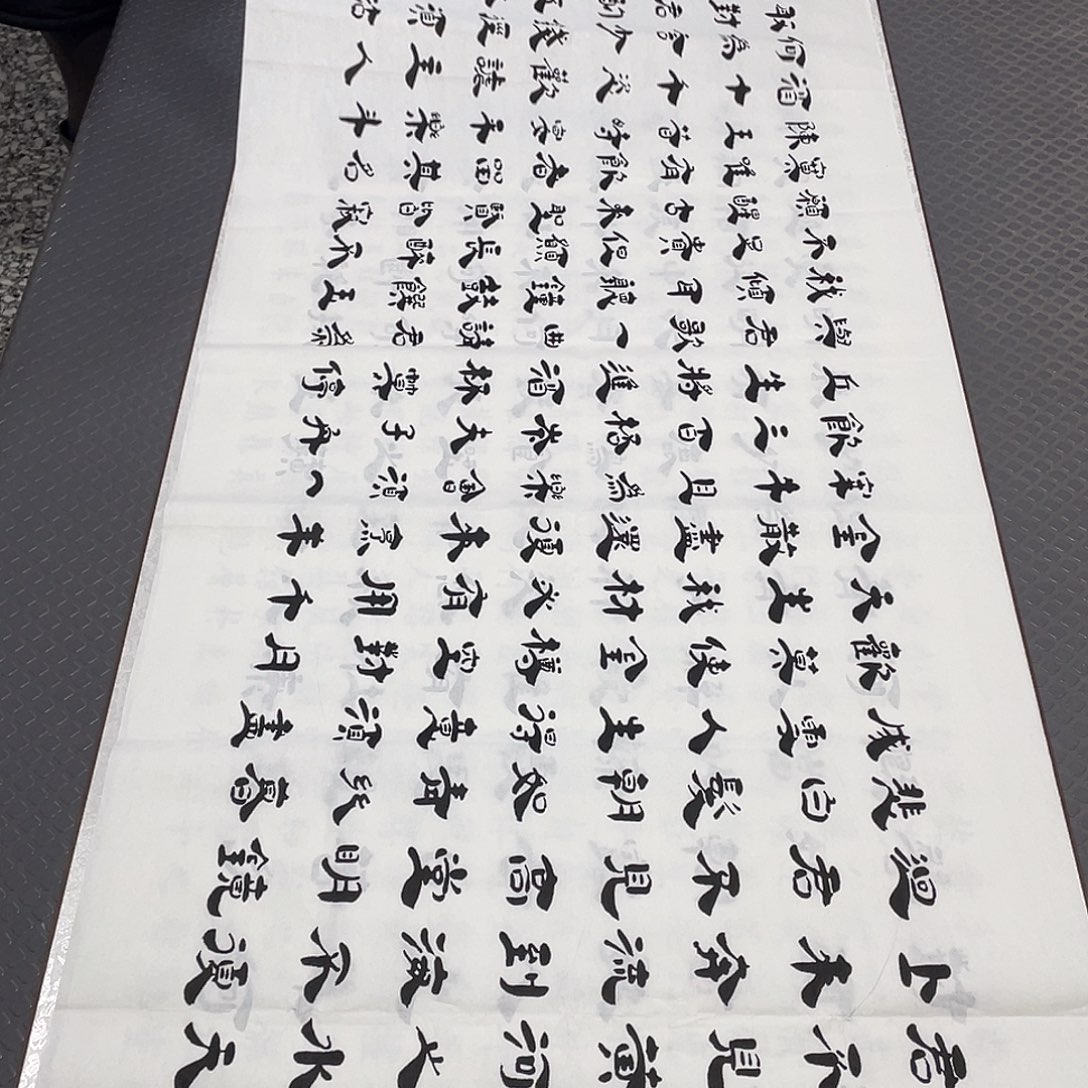 君不見黃河之水天
上來奔流到海不復
迴君不見高堂明鏡
悲白髮朝如青絲暮
成雪人生得意須盡
歡莫使金樽空對月
天生我材必有用千
金散盡還復來烹羊
宰牛且為樂會須一
飲三百杯岑夫子丹
丘生將進酒杯莫停
與君歌一曲請君為
我傾耳聽鐘鼓饌玉
不足貴但願長醉不
願醒古來聖賢皆寂
寞惟有飲者留其名
陳王昔時宴平樂斗
酒十千恣歡謔主人
何為言少錢徑須沽
取對